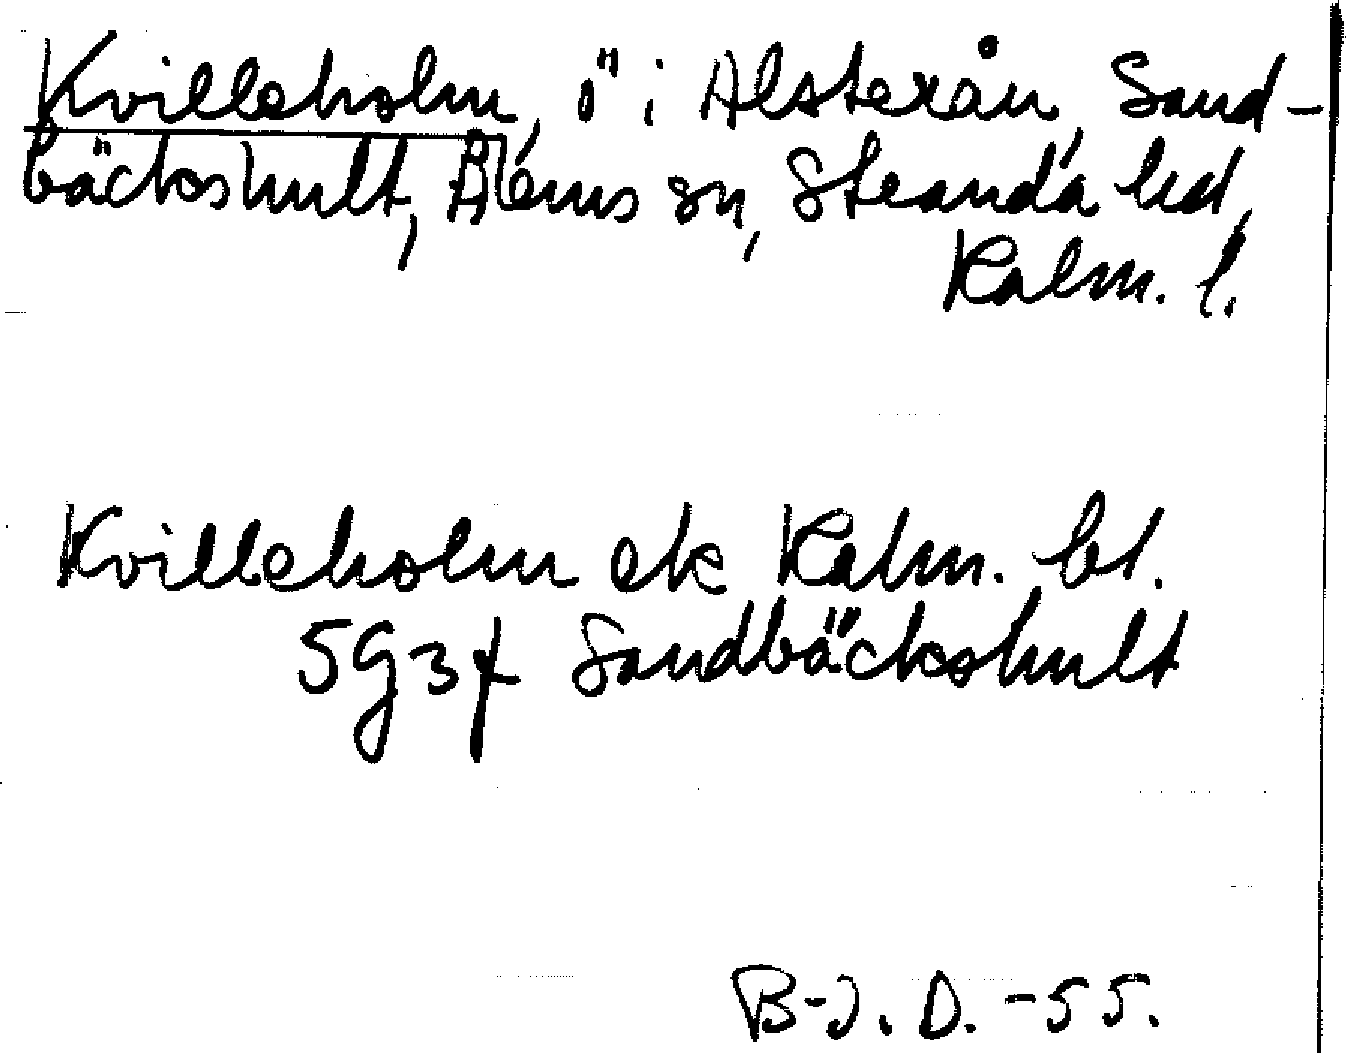 Kvilleholm, ö i Alsterån, Sand-
bäckshult, Ålems sn, Stranda hd,
Kalm. l.
Kvilleholm ek Kalm. bl.
5G3f Sandbäckshult
B-J. D. -55.